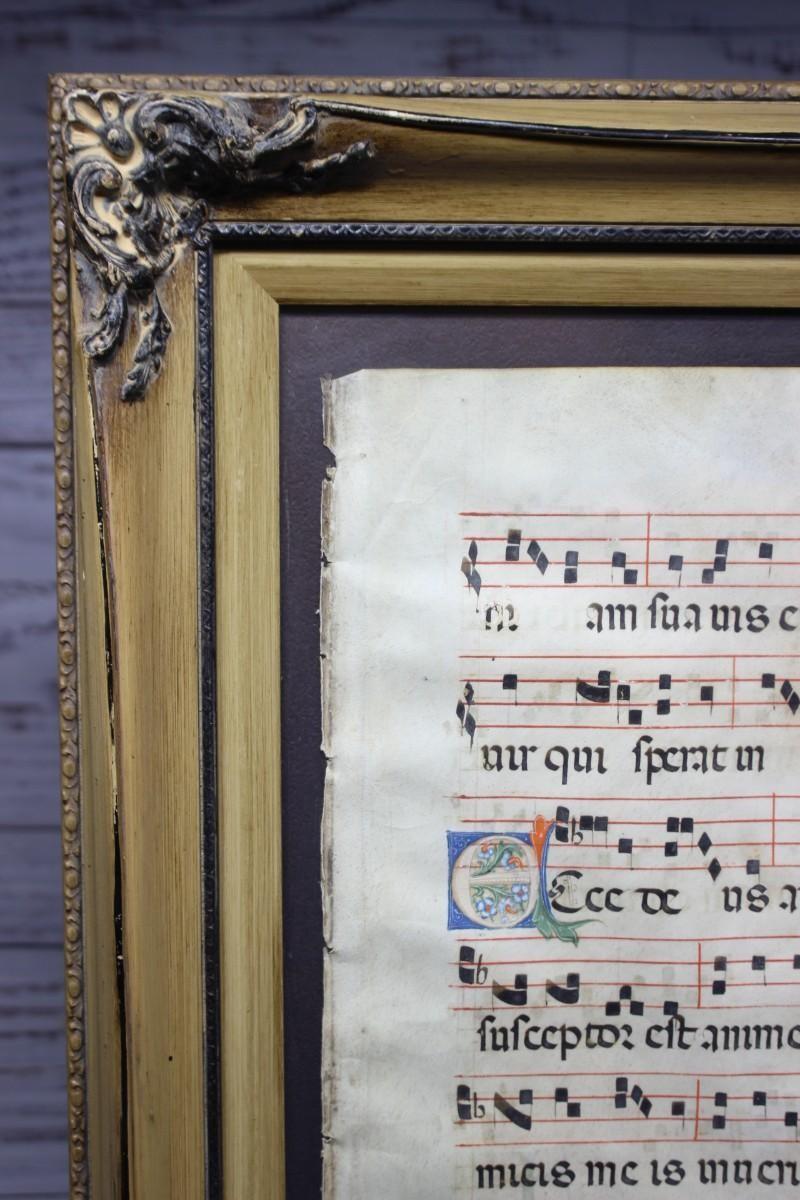 am sua uis
uir qui sperat in
Ecce de us
susceptor est anime
micis me is